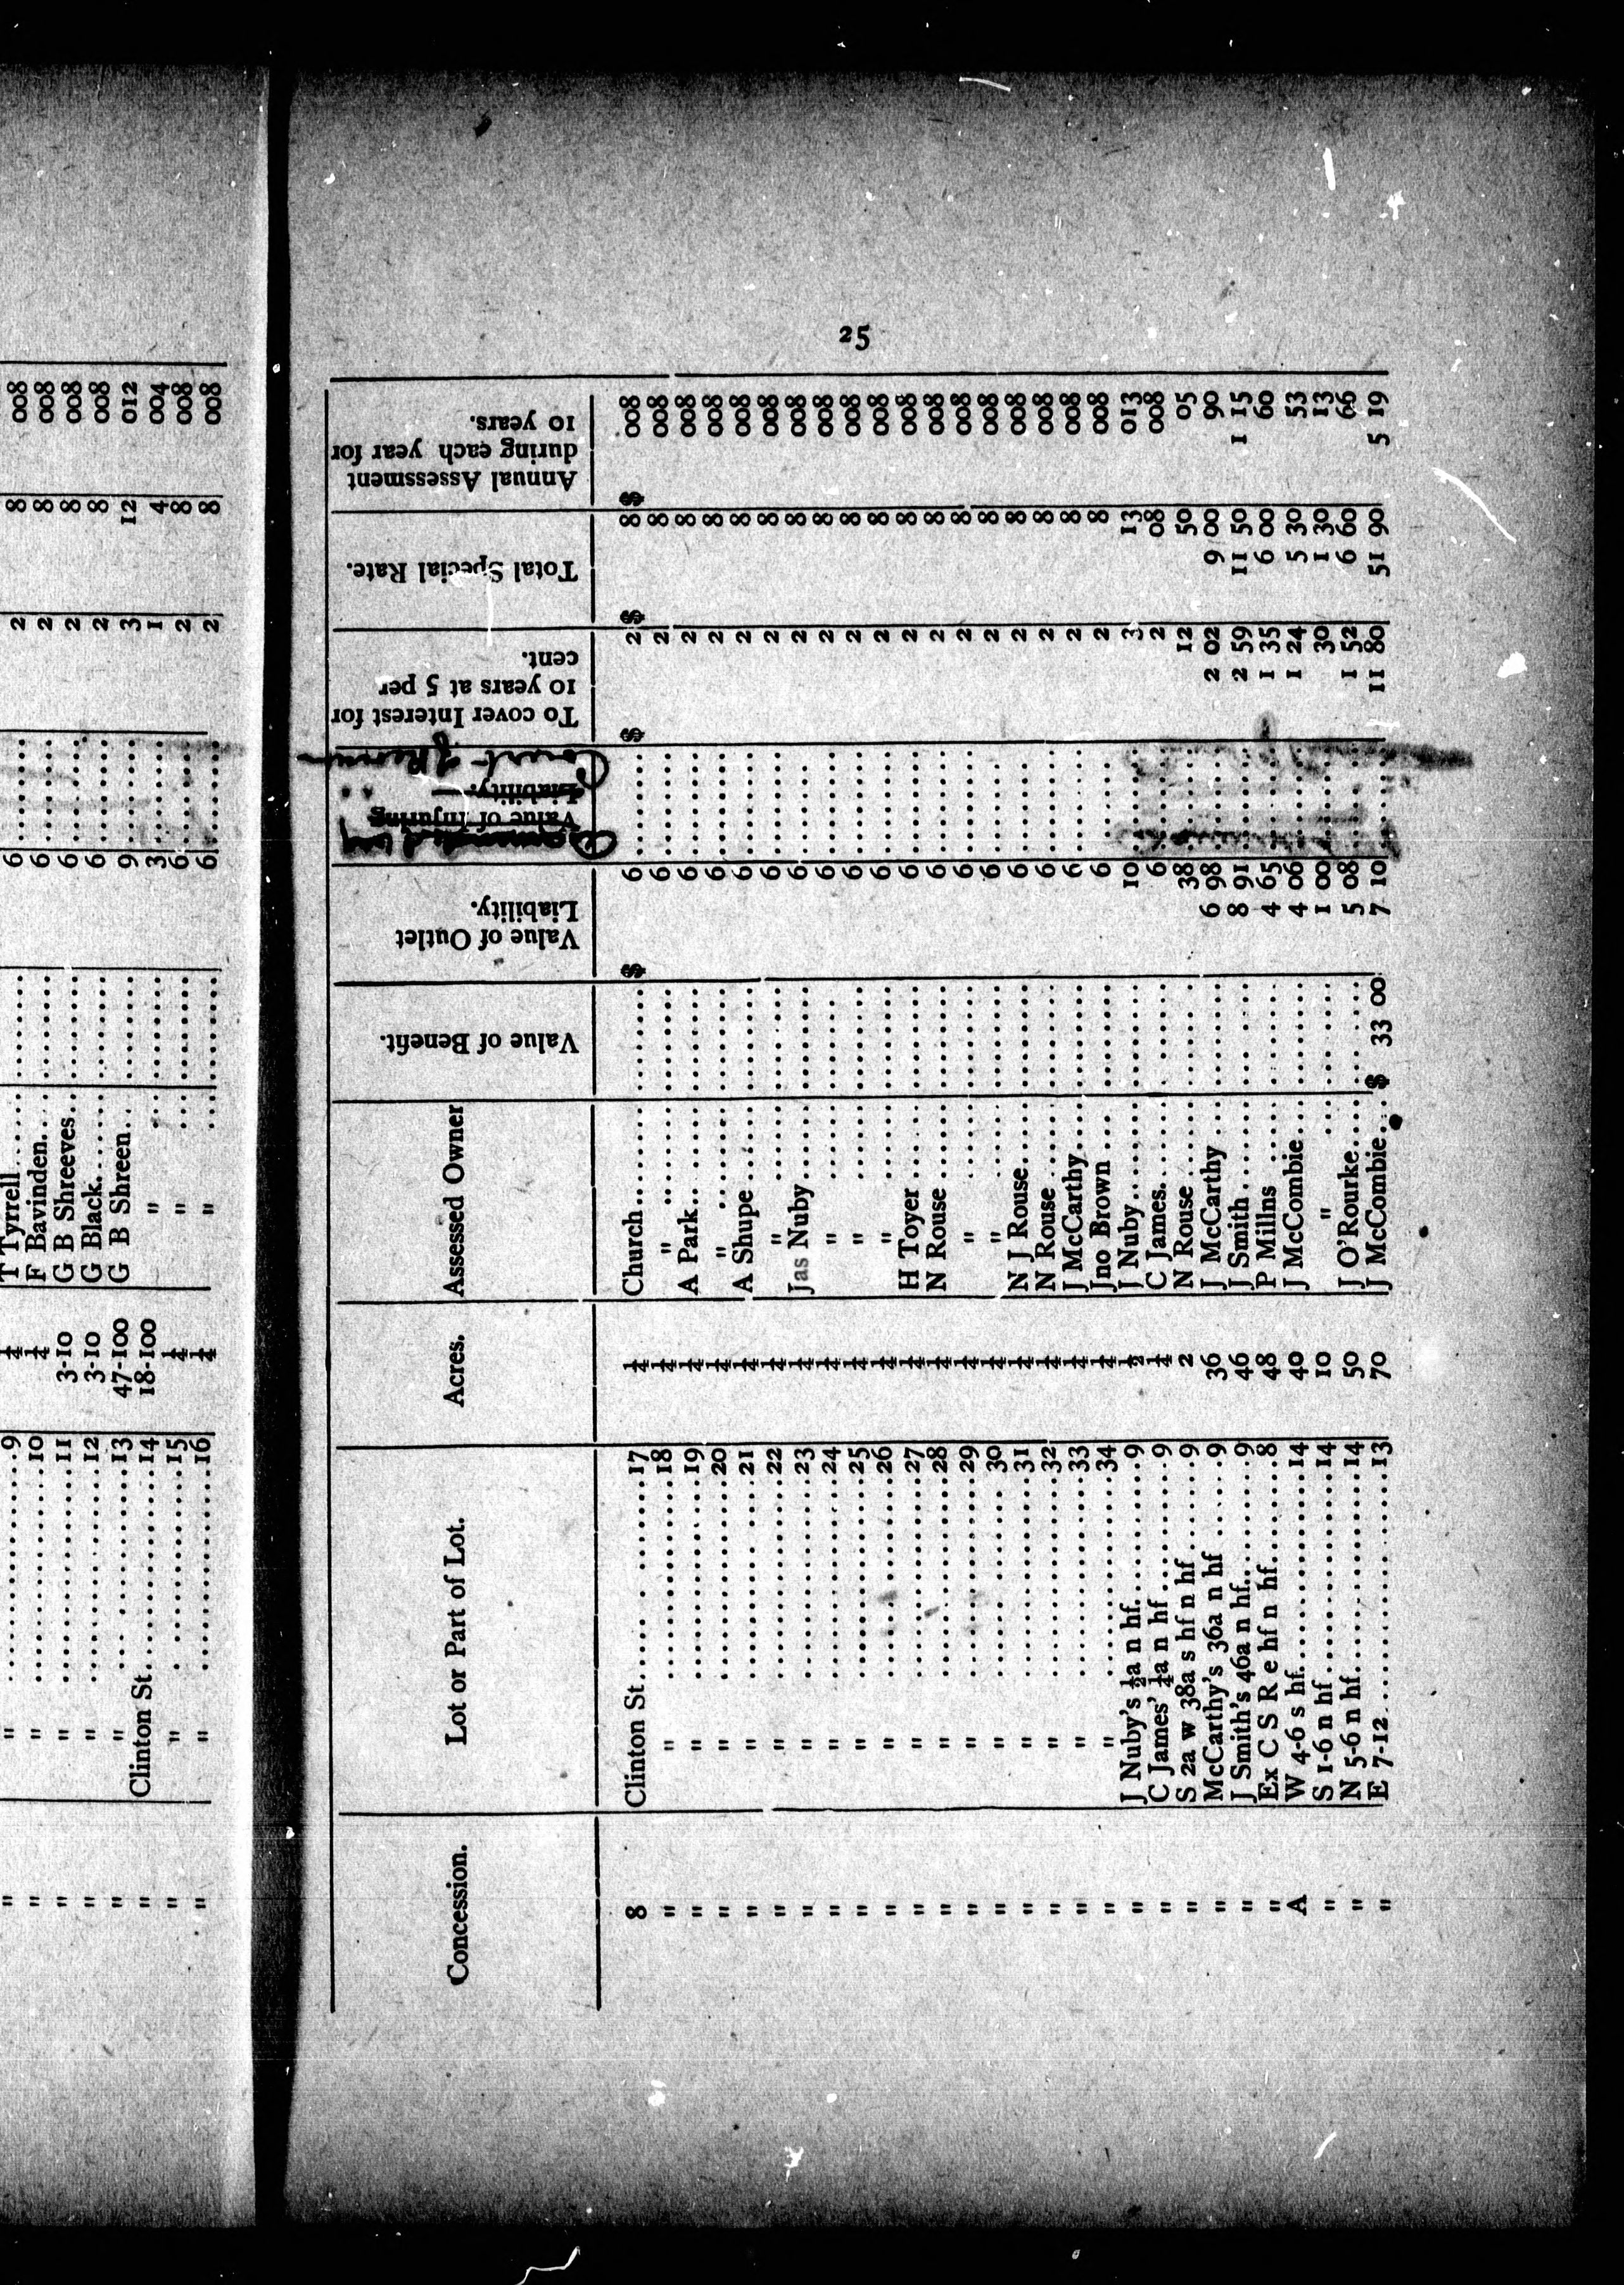 " " 9 ¼ T Tyrrell 6 2 8 008
" " 10 ¼ F Bavinden 6 2 8 008
" " 11 3-10 G B Shreeves 6 2 8 008
" " 12 3-10 G Black 6 2 8 008
" " 13 47-100 G B Shreen 9 3 12 012
" Clinton St 14 18-100 " 3 1 4 004
" " 15 ¼ " 6 2 8 008
" " 16 ¼ " 6 2 8 008
25
Concession. Lot or Part of Lot. Acres. Assessed Owner Value of Benefit. Value of Outlet Liability. Value of Injuring Liability. Court of To cover Interest for 10 years at 5 per cent. Total Special Rate. Annual Assessment during each year for 10 years.
8 Clinton St 17 ¼ Church $ 6 $ 2 $ 8 $ 008
" " 18 ¼ " 6 2 8 008
" " 19 ¼ A Park 6 2 8 008
" " 20 ¼ " 6 2 8 008
" " 21 ¼ A Shupe 6 2 8 008
" " 22 ¼ " 6 2 8 008
" " 23 ¼ Jas Nuby 6 2 8 008
" " 24 ¼ " 6 2 8 008
" " 25 ¼ " 6 2 8 008
" " 26 ¼ " 6 2 8 008
" " 27 ¼ H Toyer 6 2 8 008
" " 28 ¼ N Rouse 6 2 8 008
" " 29 ¼ " 6 2 8 008
" " 30 ¼ " 6 2 8 008
" " 31 ¼ N J Rouse 6 2 8 008
" " 32 ¼ N Rouse 6 2 8 008
" " 33 ¼ J McCarthy 6 2 8 008
" " 34 ¼ Jno Brown 6 2 8 008
" J Nuby's ½a n hf 9 ½ J Nuby 10 3 13 013
" C James' ¼a n hf 9 ¼ C James 6 2 08 008
" S 2a w 38a s hf n hf 9 2 N Rouse 38 12 50 05
" McCarthy's 36a n hf 9 36 J McCarthy 6 98 2 02 9 00 90
" J Smith's 46a n hf 9 46 J Smith 8 91 2 59 11 50 1 15
" Ex C S R e hf n hf 8 48 P Millns 4 65 1 35 6 00 60
A W 4-6 s hf 14 40 J McCombie 4 06 1 24 5 30 53
" S 1-6 n hf 14 10 " 1 00 30 1 30 13
" N 5-6 n hf 14 50 J O'Rourke 5 08 1 52 6 60 66
" E 7-12 13 70 J McCombie $ 33 00 7 10 11 80 51 90 5 19